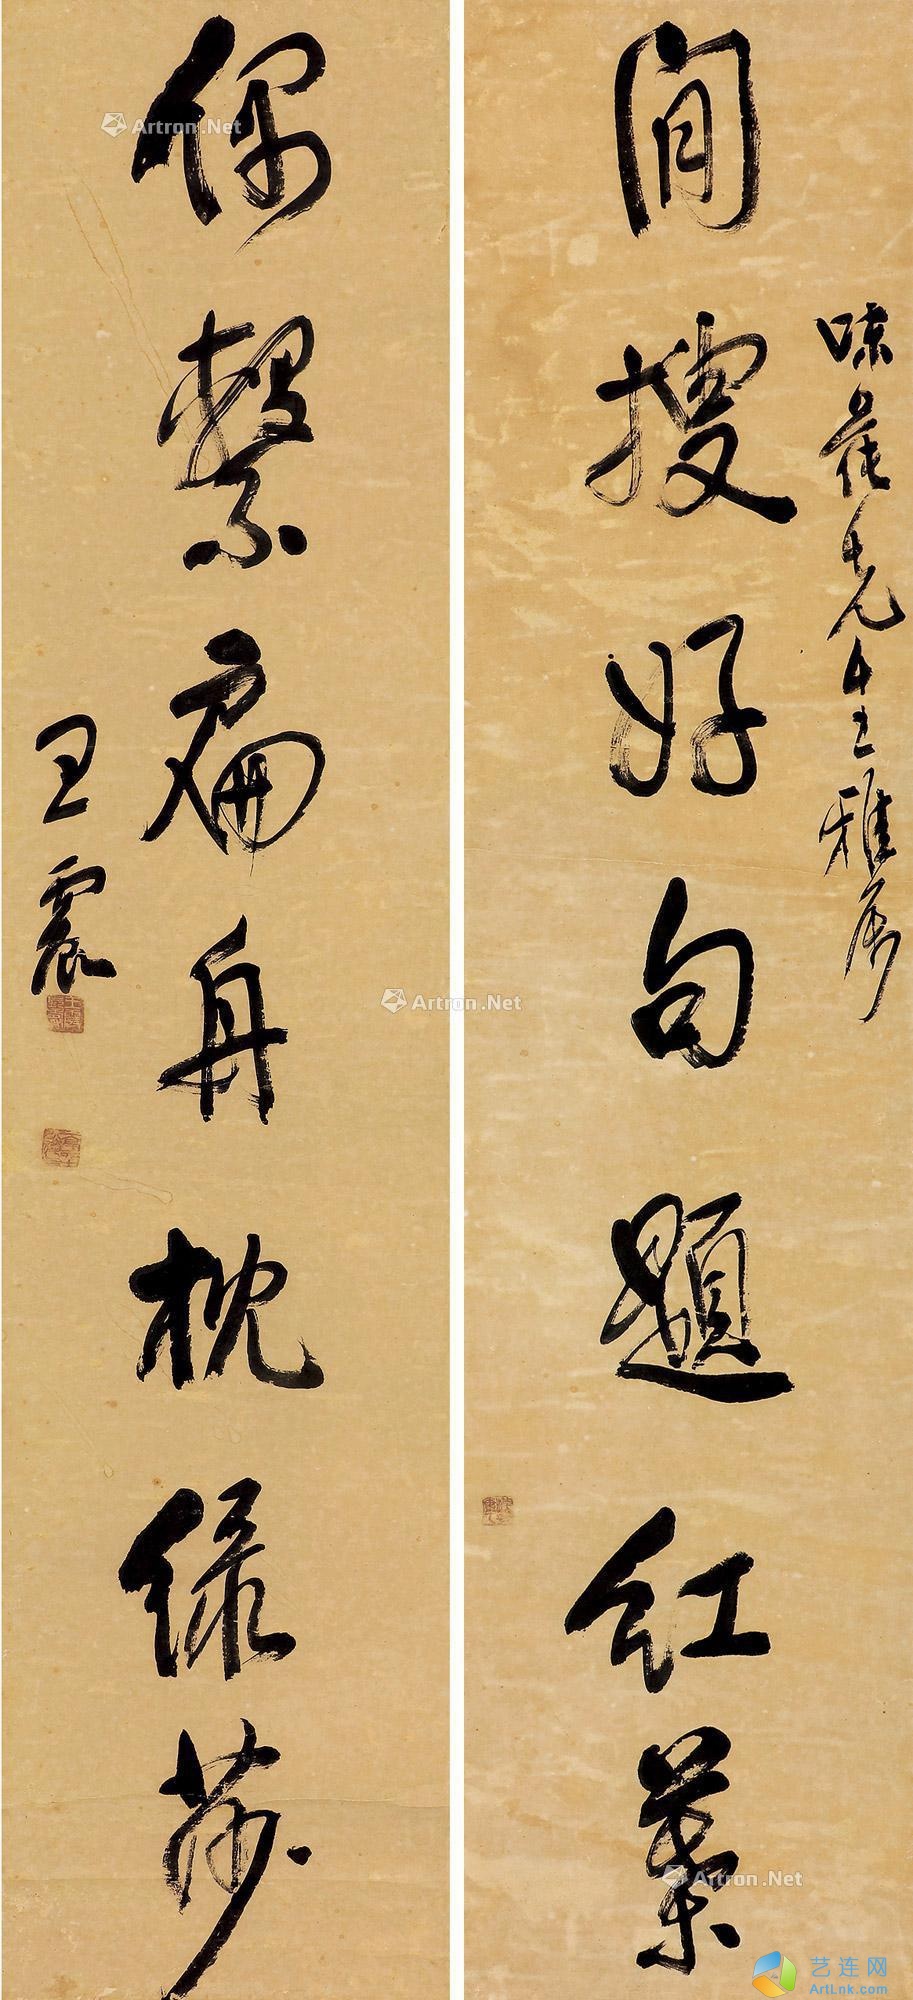 味莼先生雅屬
閒搜好句題紅葉
偶繫扁舟枕綠莎
王震
Artron.Net
Artron.Net
Artron.Net
艺连网
ArtLnk.com